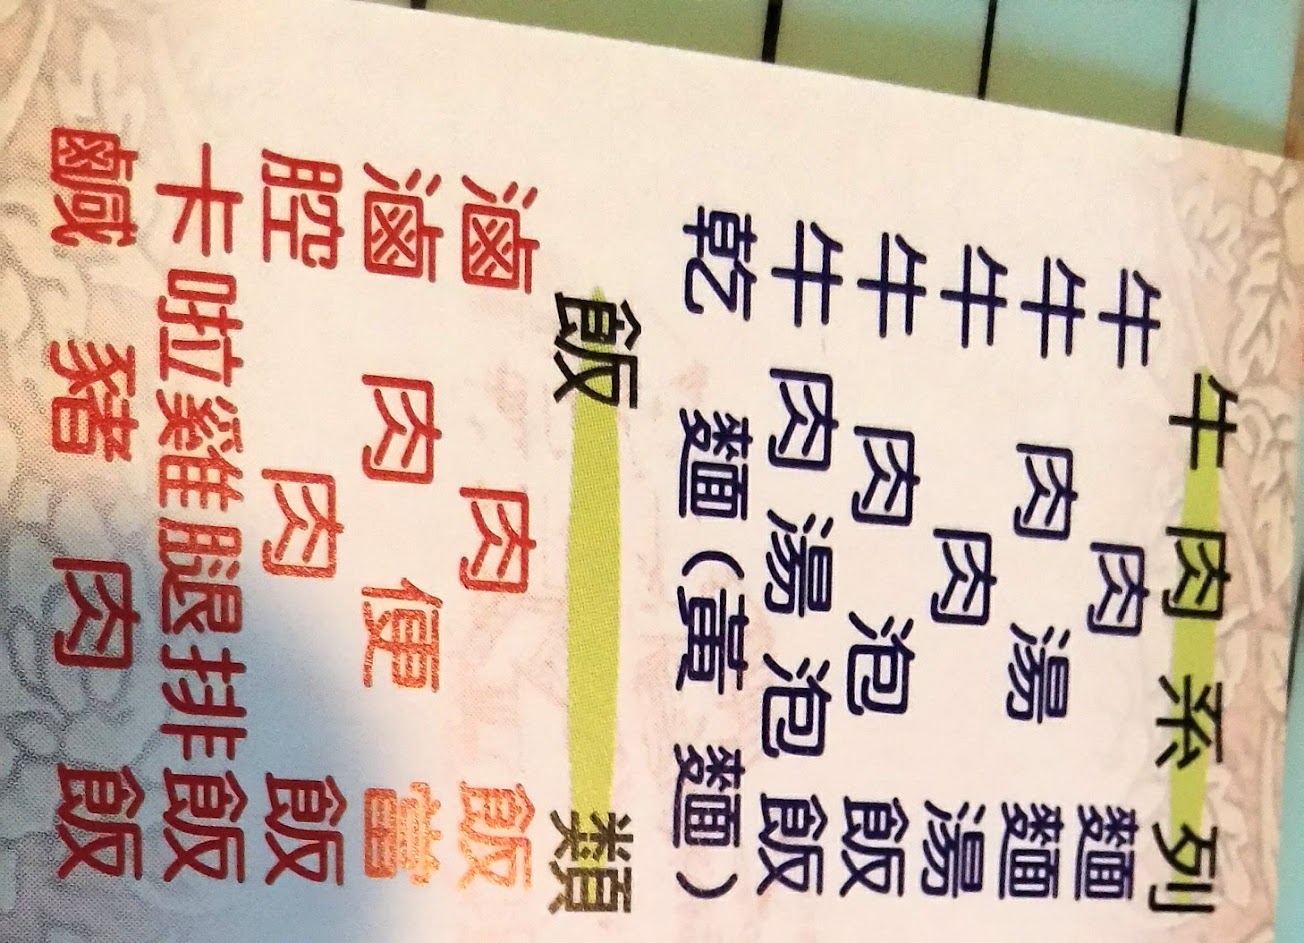 牛肉系列
牛肉麵
牛肉湯麵
牛肉湯
牛肉泡飯
牛肉湯泡飯
乾麵（黃麵）
飯類
滷肉飯
滷肉便當
腔肉飯
卡啦雞腿排飯
鹹豬肉飯